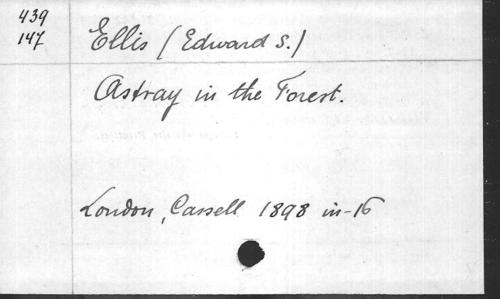 439
147
Ellis (Edward S.)
Astray in the Forest.
London, Cassell 1898 in-16